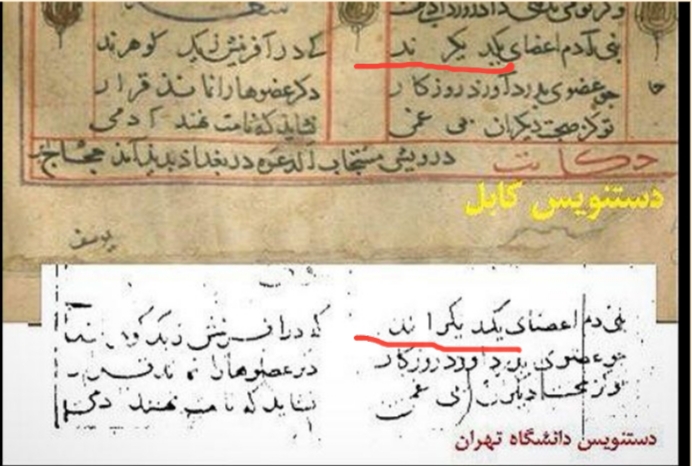 بنی آدم اعضای یکد یکر ند که در آفرینش زیک کوهرند
چو عضوی بدرد آورد روزکار دکر عضوها را نماند قرار
توکز محنت دیکران بی غمی نشاید که نامت نهند آدمی
حکایت درویشی مستجاب الدعوه در بغداد پدید آمد حجاج
دستنویس کابل
یوسف
بنی دم اعضای یکد یکرا ند که در افرینش زیک
چو عضوی بدرد اورد روزکار عضوها را
توکز محنت دیکران بی غمی نشاید که نامت نهند
دستنویس دانشگاه تهران